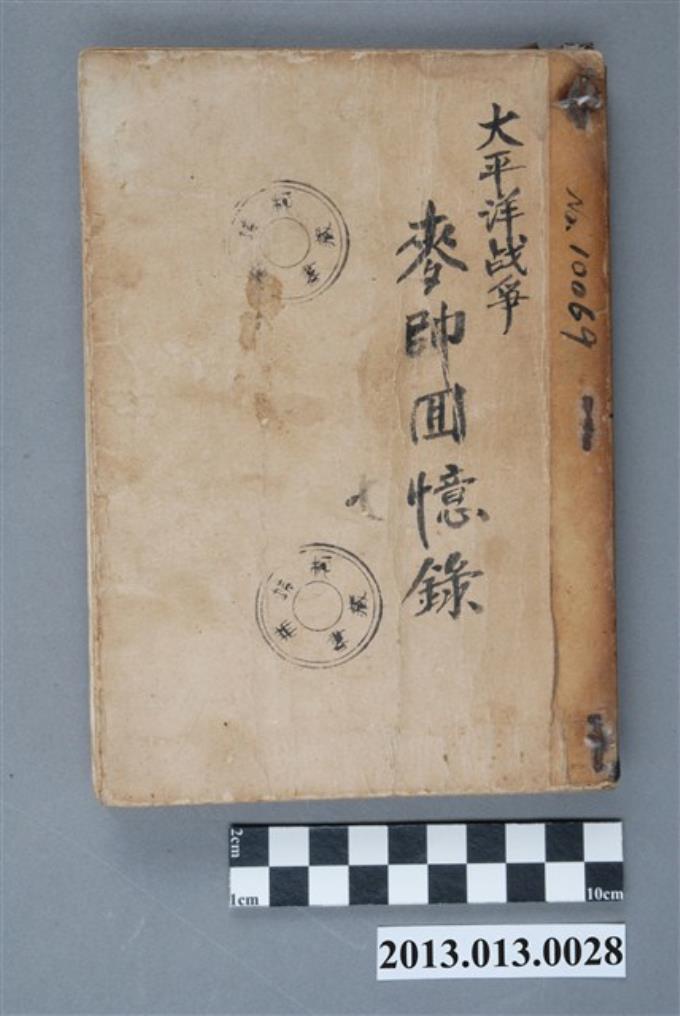 No. 10069
大平洋战爭
麥帥回憶錄
2cm
1cm
10cm
2013.013.0028